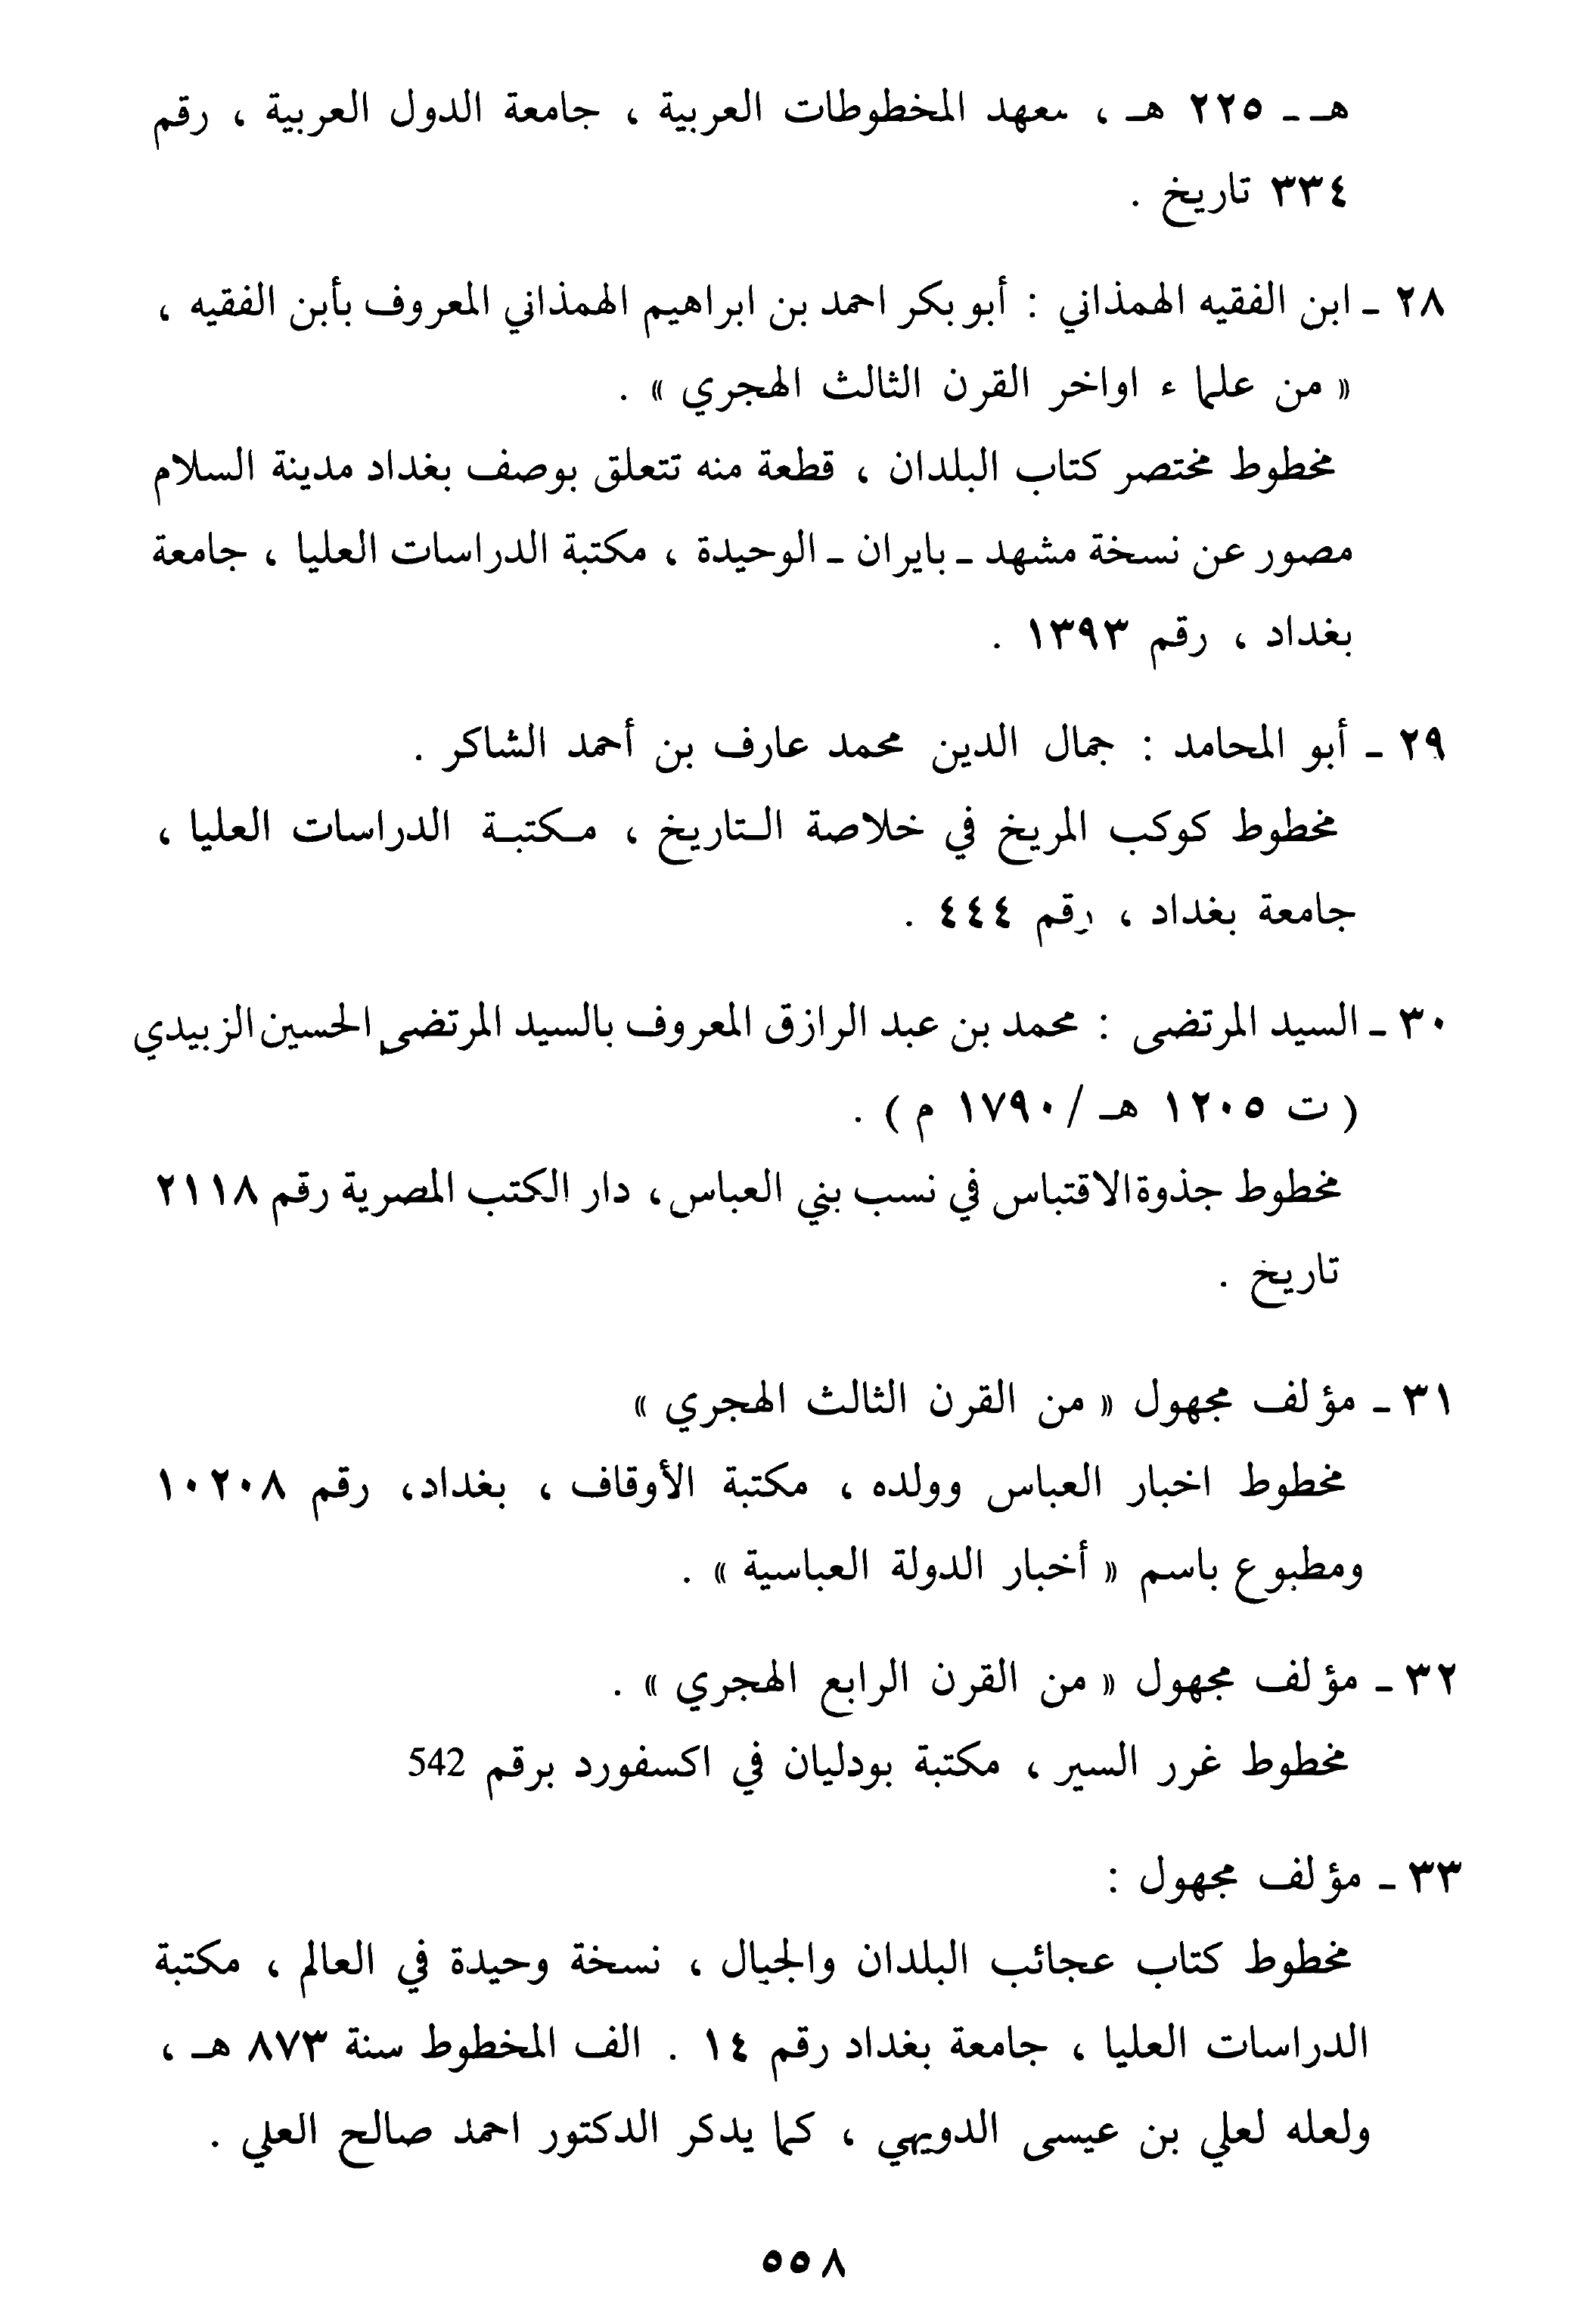 هـ ـ ٢٢٥ هـ ، معهد المخطوطات العربية ، جامعة الدول العربية ، رقم
٣٣٤ تاريخ .
٢٨ ـ ابن الفقيه الهمذاني : أبو بكر احمد بن ابراهيم الهمذاني المعروف بأبن الفقيه ،
« من علماء اواخر القرن الثالث الهجري » .
مخطوط مختصر كتاب البلدان ، قطعة منه تتعلق بوصف بغداد مدينة السلام
مصور عن نسخة مشهد ـ بايران ـ الوحيدة ، مكتبة الدراسات العليا ، جامعة
بغداد ، رقم ١٣٩٣ .
٢٩ ـ أبو المحامد : جمال الدين محمد عارف بن أحمد الشاكر .
مخطوط كوكب المريخ في خلاصة الـتاريخ ، مـكتبـة الدراسات العليا ،
جامعة بغداد ، رقم ٤٤٤ .
٣٠ ـ السيد المرتضى : محمد بن عبد الرازق المعروف بالسيد المرتضى الحسين الزبيدي
( ت ١٢٠٥ هـ /١٧٩٠ م ) .
مخطوط جذوة الاقتباس في نسب بني العباس ، دار الكتب المصرية رقم ٢١١٨
تاريخ .
٣١ ـ مؤلف مجهول « من القرن الثالث الهجري »
مخطوط اخبار العباس وولده ، مكتبة الأوقاف ، بغداد، رقم ١٠٢٠٨
ومطبوع باسم « أخبار الدولة العباسية » .
٣٢ ـ مؤلف مجهول « من القرن الرابع الهجري » .
مخطوط غرر السير ، مكتبة بودليان في اكسفورد برقم 542
٣٣ ـ مؤلف مجهول :
مخطوط كتاب عجائب البلدان والجبال ، نسخة وحيدة في العالم ، مكتبة
الدراسات العليا ، جامعة بغداد رقم ١٤ . الف المخطوط سنة ٨٧٣ هـ ،
ولعله لعلي بن عيسى الدويهي ، كما يدكر الدكتور احمد صالح العلي .
٥٥٨